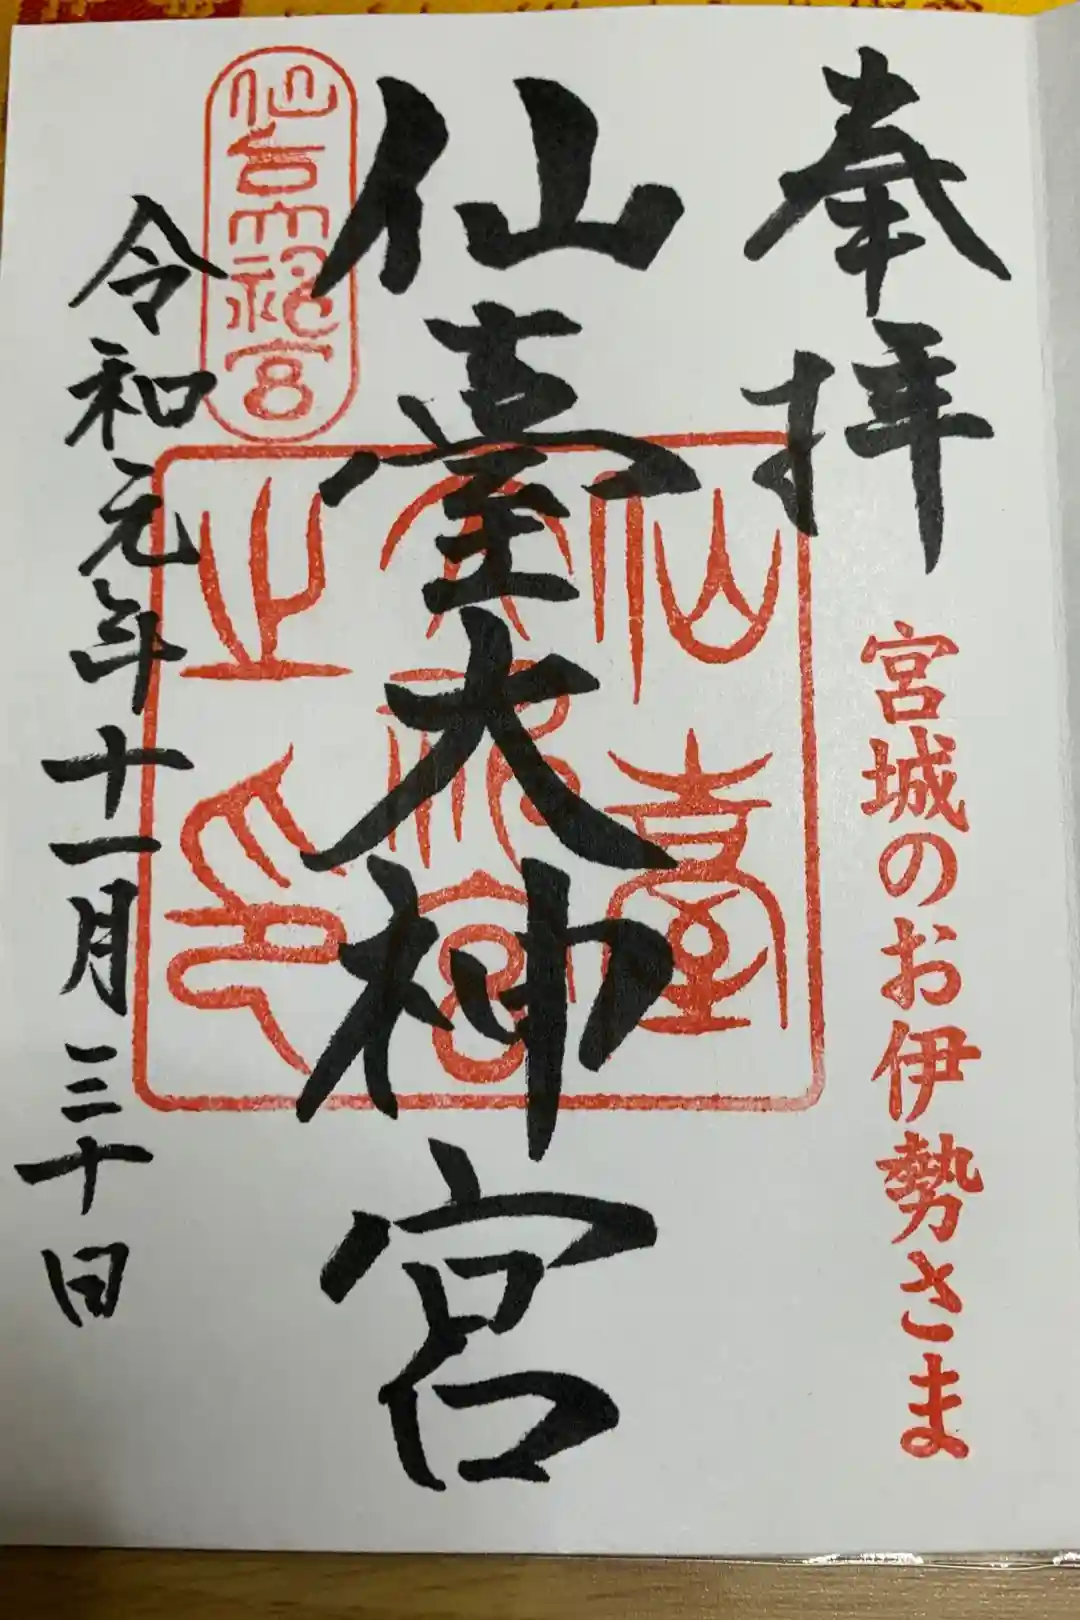 奉拝
宮城のお伊勢さま
仙臺大神宮
仙臺大神宮之印
令和元年十一月三十日